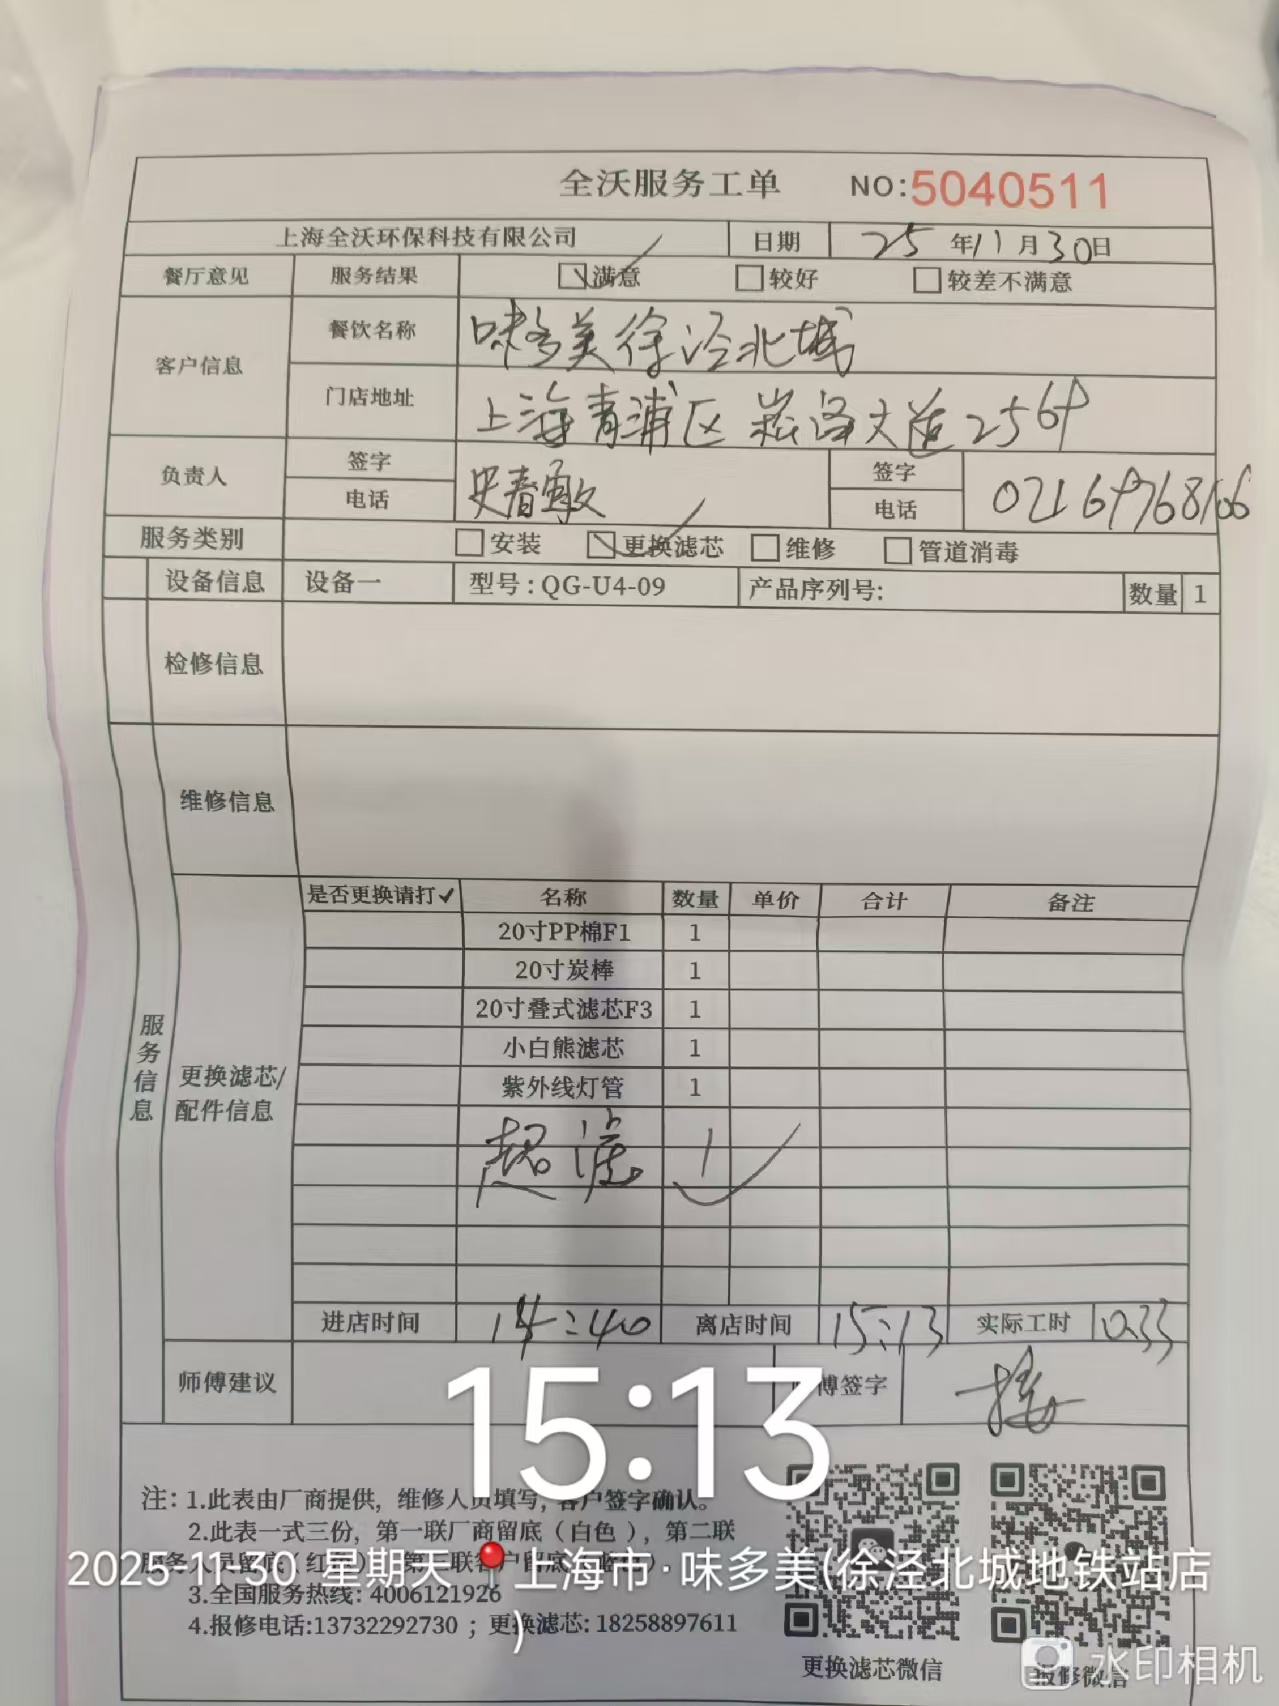 全沃服务工单 NO:5040511
上海全沃环保科技有限公司 日期 25年11月30日
餐厅意见 服务结果 满意 较好 较差不满意
客户信息 餐饮名称 味多美徐泾北城
门店地址 上海青浦区崧泽大道256
负责人 签字 电话 史春敏 签字 电话
服务类别 安装 更换滤芯 维修 管道消毒
设备信息 设备一 型号:QG-U4-09 产品序列号: 数量 1
检修信息
维修信息
服务信息
更换滤芯/配件信息
是否更换请打✓ 名称 数量 单价 合计 备注
20寸PP棉F1 1
20寸炭棒 1
20寸叠式滤芯F3 1
小白熊滤芯 1
紫外线灯管 1
超滤 1
进店时间 14:40 离店时间 15:13 实际工时 0.33
师傅建议 师傅签字
15:13
注: 1.此表由厂商提供, 维修人员填写, 客户签字确认。
2.此表一式三份, 第一联厂商留底(白色), 第二联
3.全国服务热线: 4006121926
4.报修电话:13732292730 ; 更换滤芯: 18258897611
2025-11-30 星期天 上海市·味多美(徐泾北城地铁站店)
更换滤芯微信 报修微信
水印相机